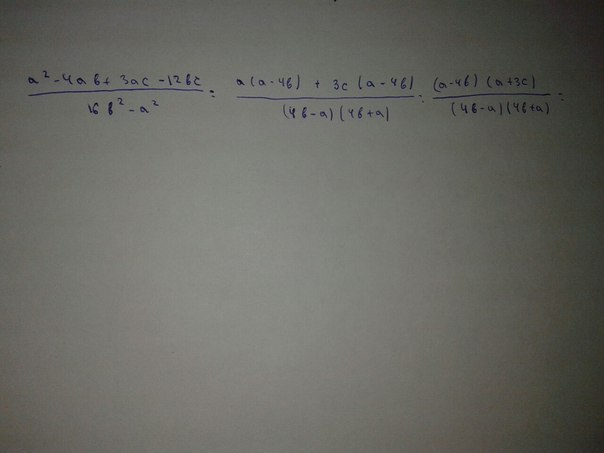 a² - 4ab + 3ac - 12bc / 16b² - a² = a(a-4b) + 3c(a-4b) / (4b-a)(4b+a) = (a-4b)(a+3c) / (4b-a)(4b+a) =